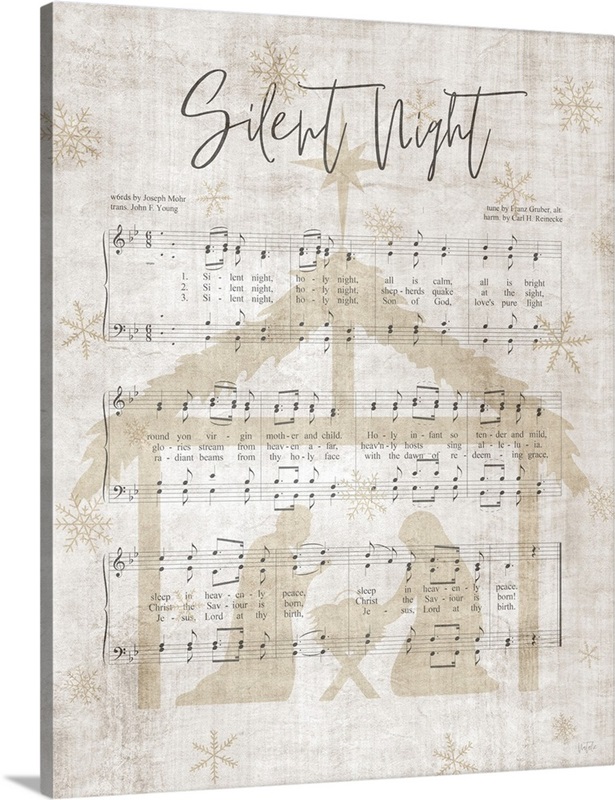 Silent Night
words by Joseph Mohr
trans. John F. Young
tune by Franz Gruber, alt.
harm. by Carl H. Reinecke
1. Si - lent night, ho - ly night, all is calm, all is bright
2. Si - lent night, ho - ly night, shep - herds quake at the sight,
3. Si - lent night, ho - ly night, Son of God, love's pure light
round yon vir - gin moth - er and child. Ho - ly in - fant so ten - der and mild,
glo - ries stream from heav - en a - far, heav'n - ly hosts sing al - le - lu - ia.
ra - diant beams from thy ho - ly face with the dawn of re - deem - ing grace,
sleep in heav - en - ly peace, sleep in heav - en - ly peace.
Christ the Sav - iour is born, Christ the Sav - iour is born!
Je - sus, Lord at thy birth, Je - sus, Lord at thy birth.